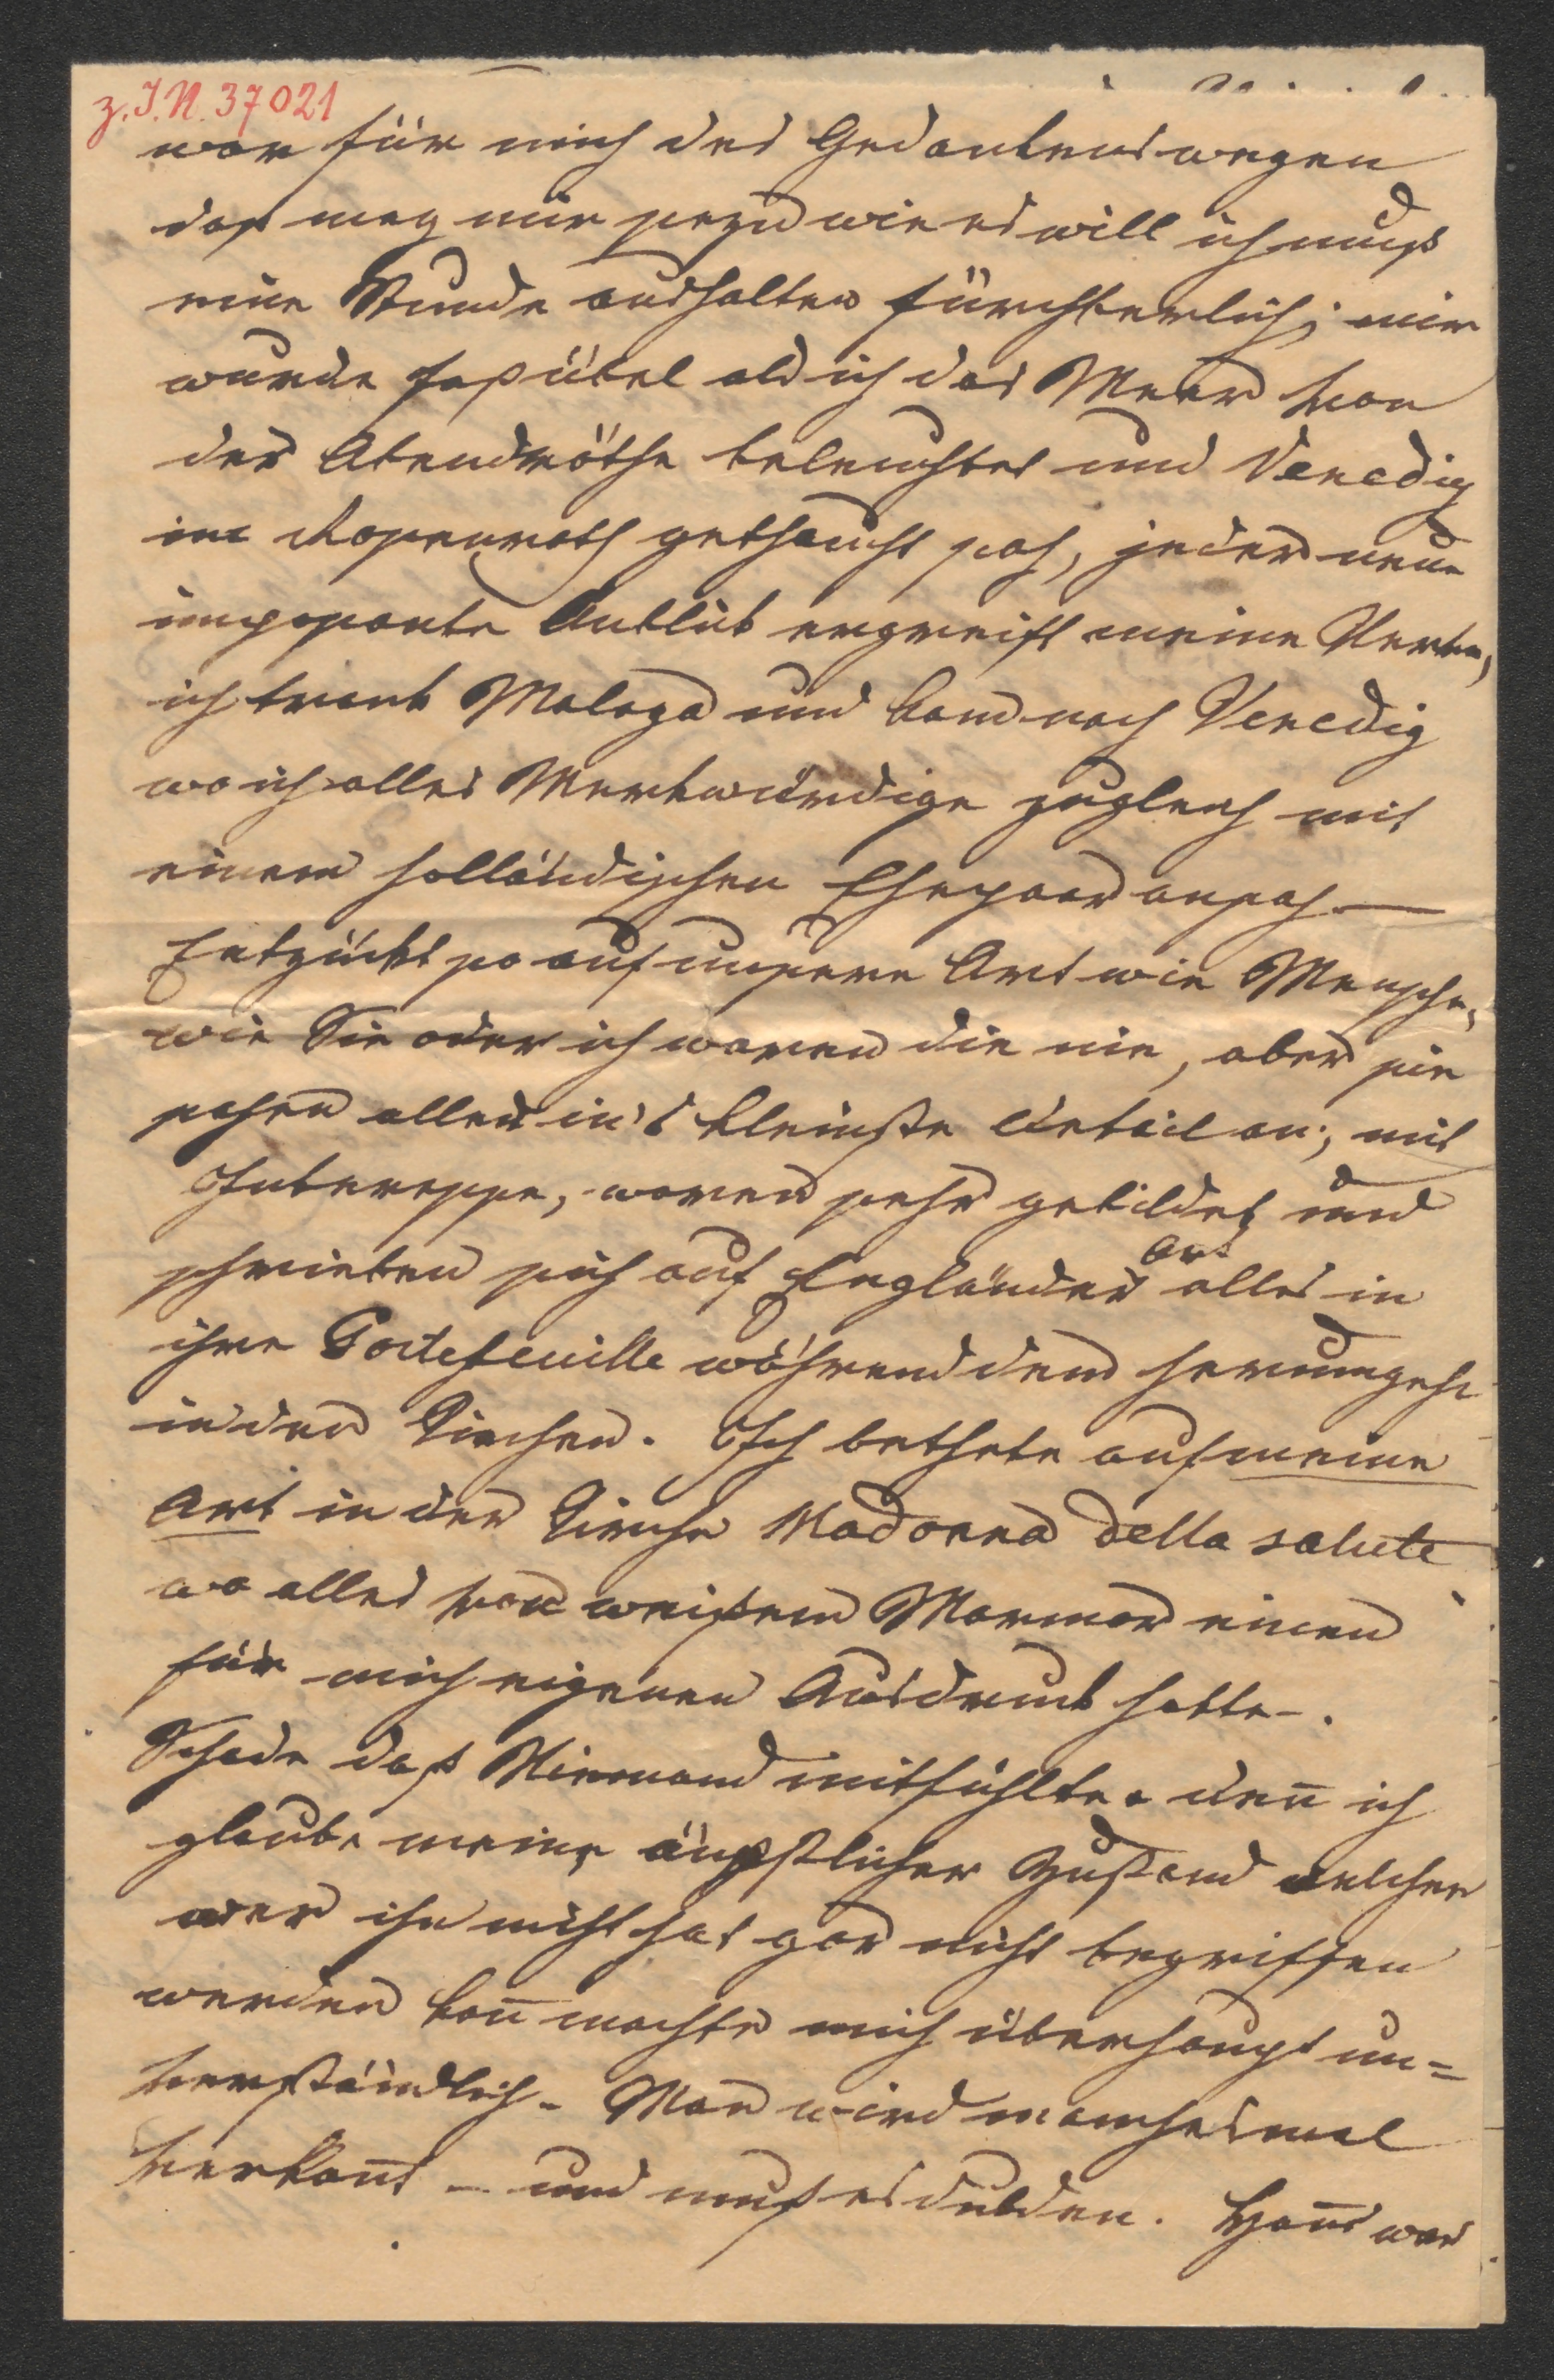 z. I. N. 37021
war für mich des Gedankens wegen
das mag mir sezu wie es will ich muß
eine Stunde aushalten fürchterlich; mir
wurde fast übel als ich das Meer von
der Abendröthe beleuchtet und Venedig
im Rosenroth gethaucht sah, jeder neue
imposante Anblick ergreift meine Nerven,
ich trank Malaga und kam nach Venedig
wo ich alles Merkwürdige zugleich mit
einem holländischen Ehepaar ansah. —
Entzückt so auf unsere Art wie Menschen,
wie Sie oder ich waren die nie, aber sie
sahen alles in's kleinste Detail an, mit
Interesse, waren sehr gebildet und
schrieben sich auf Engländer Art alles in
ihre Portefeuille während dem herumgehn
in den Kirchen. Ich bethete auf meine
Art in der Kirche Madonna della salute
wo alles von weißem Marmor einen
für mich eigenen Ausdruck hatte –.
Schade daß Niemand mitfühlte. den̄ ich
glaube meine ängstlicher Zustand welcher
wer ihn nicht hat gar nicht begriffen
werden kan̄ machte mich überhaupt un=
verständlich – Man wird manchesmal
verkan̄t – und muß es dulden. Han̄s war